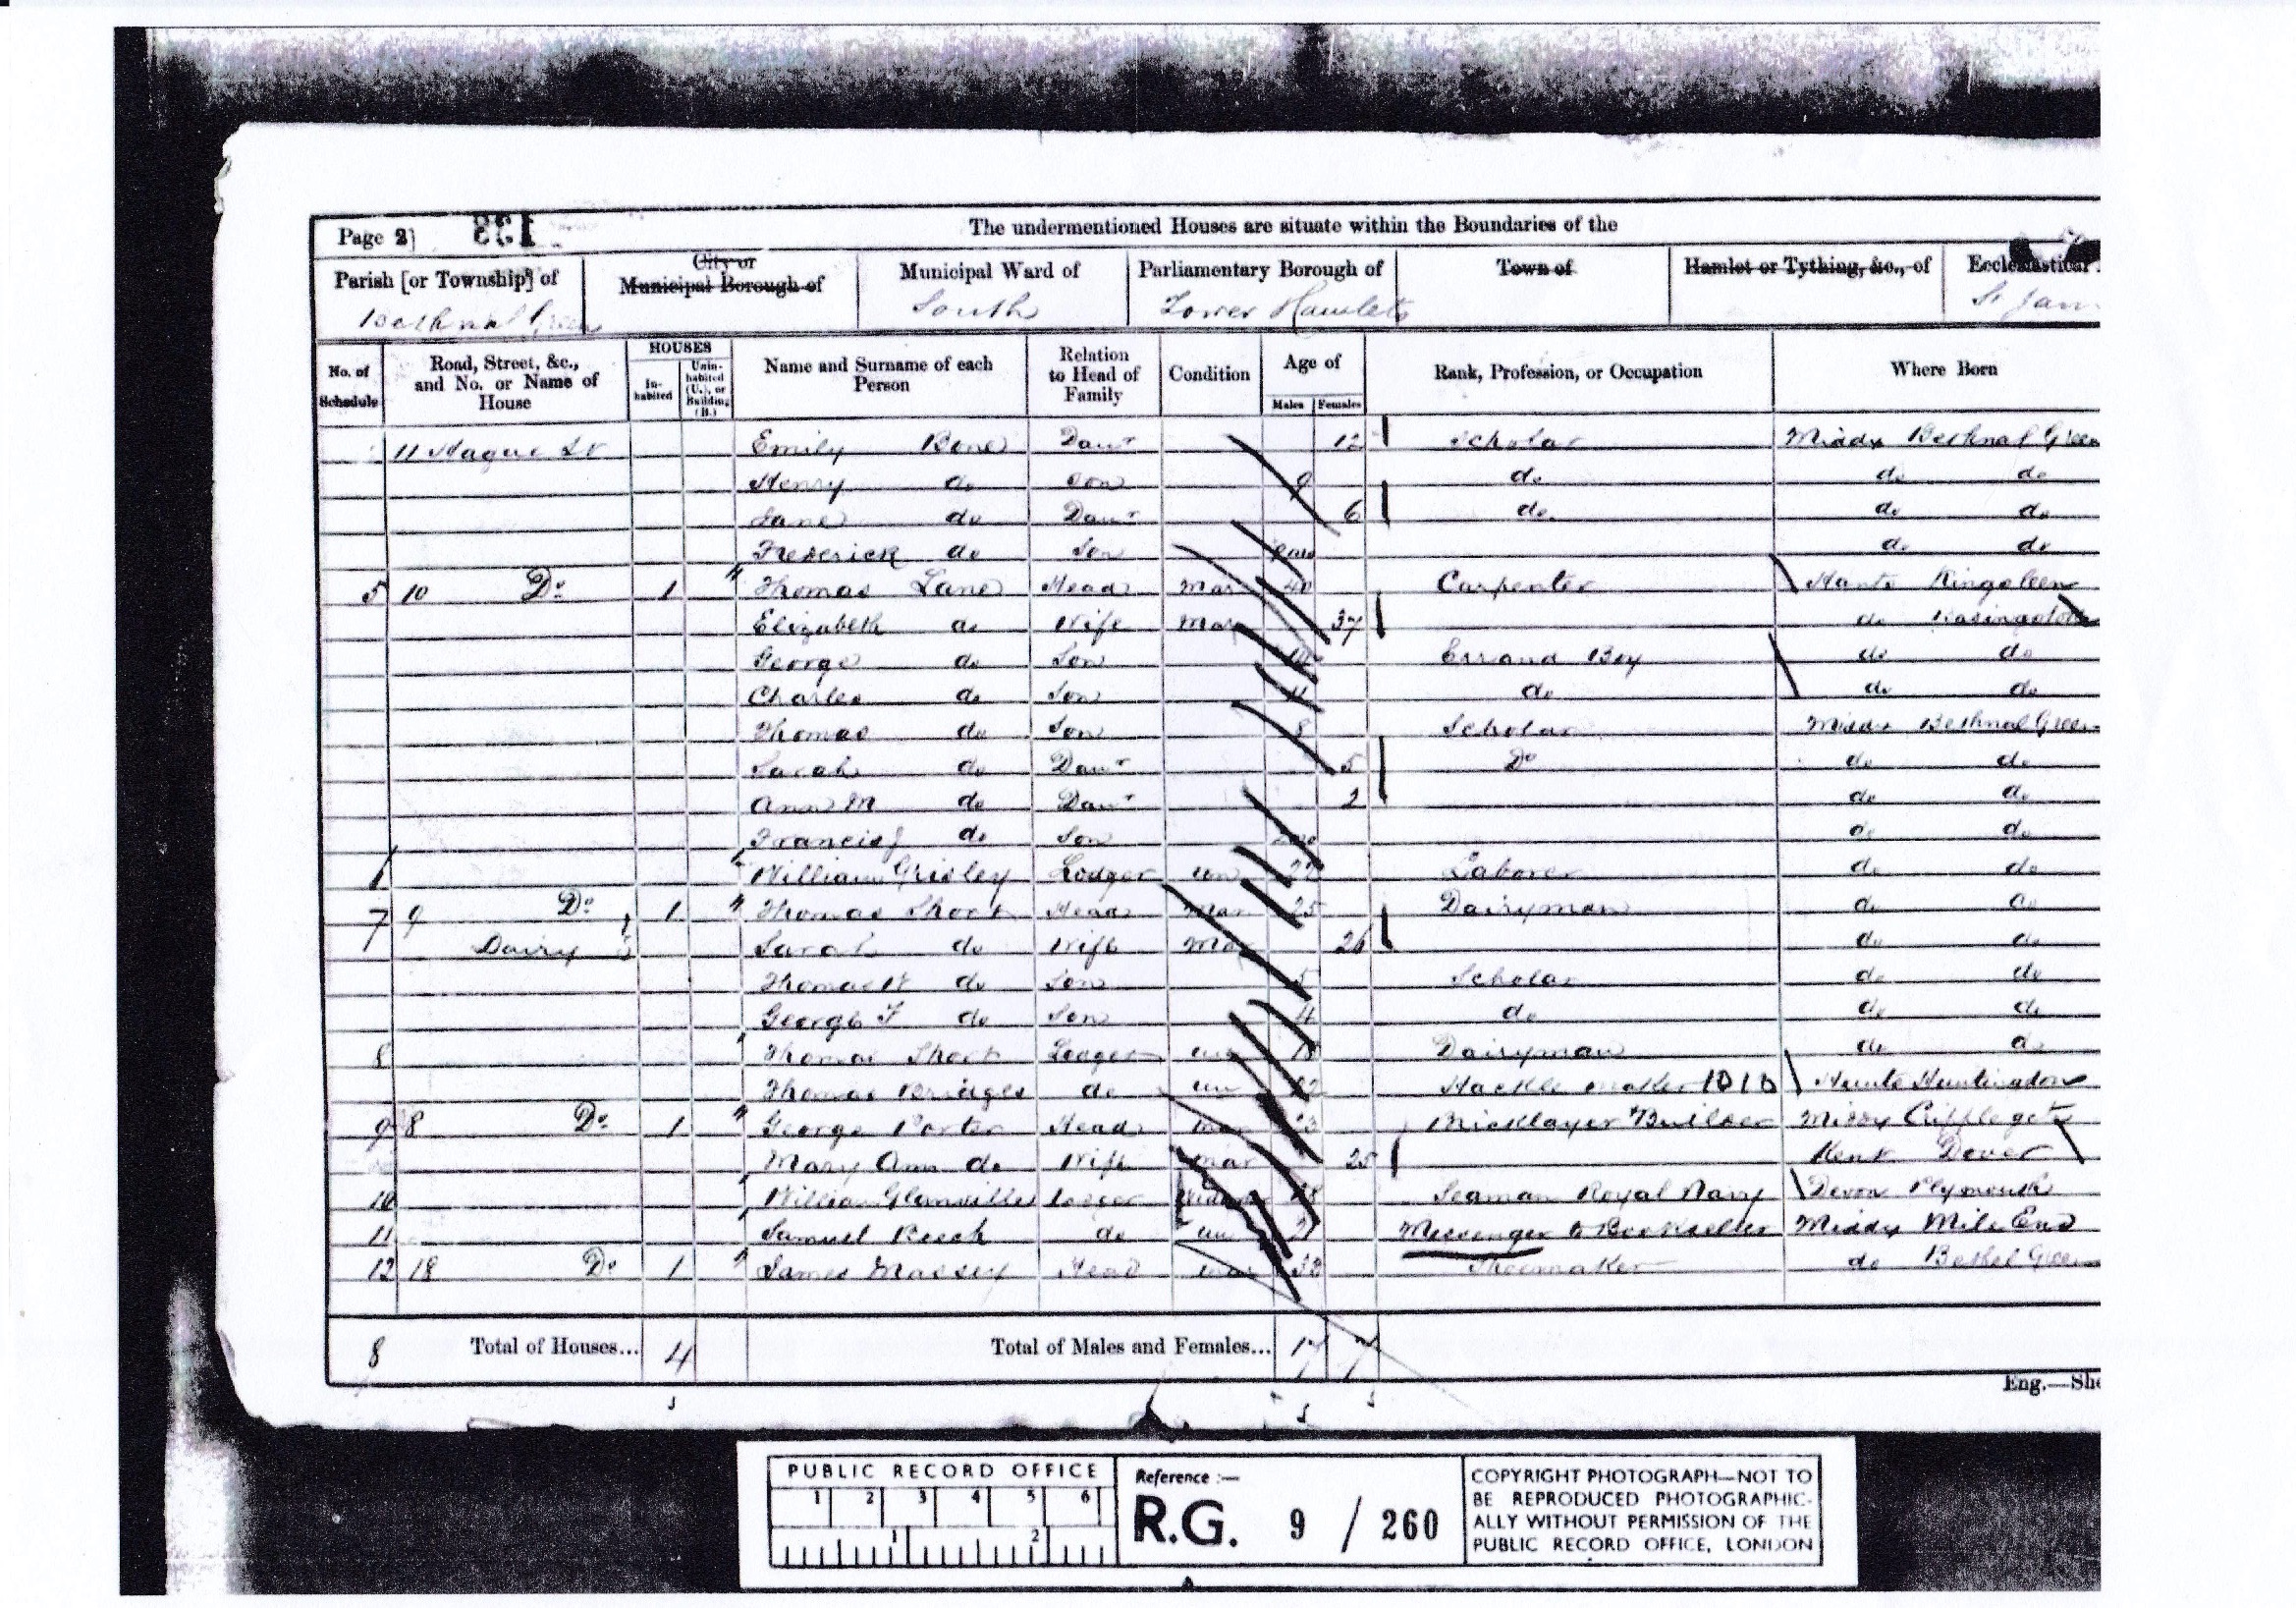 The undermentioned Houses are situate within the Boundaries of the
Page 2]
Parish [or Township] of City or Municipal Borough of Municipal Ward of Parliamentary Borough of Town of Hamlet or Tything, &c., of Ecclesiastical
Bethnal Green South Tower Hamlets St Jam
No. of Schedule Road, Street, &c., and No. or Name of House HOUSES Inhabited Uninhabited (U.), or Building (B.) Name and Surname of each Person Relation to Head of Family Condition Age of Males Females Rank, Profession, or Occupation Where Born
11 Hague St Emily Bone Daur 12 Scholar Middx Bethnal Green
Henry do Son 9 do do do
Jane do Daur 6 do do do
Frederick do Son do do
5 10 Do 1 Thomas Lane Head Mar 40 Carpenter Hants
Elizabeth do Wife Mar 37 do
George do Son 14 Errand Boy do do
Charles do Son 11 do do do
Thomas do Son 8 Scholar Middx Bethnal Green
Sarah do Daur 5 Do do do
Ann M do Daur 2 do do
Francis J do Son do do
William Grisley Lodger un Laborer do do
7 9 Do 1 Thomas Short Head Mar 25 Dairyman do do
Dairy Sarah do Wife Mar 26 do do
Thomas W do Son 5 Scholar do do
George F do Son 4 do do do
8 Thomas Short Lodger un 18 Dairyman do do
Thomas Bridges do un Hackle maker Hunts Huntingdon
9 8 Do 1 George Porter Head mar Bricklayer Builder Middx Cripplegate
Mary Ann do Wife mar 25 Kent Dover
10 William Glanville Lodger Seaman Royal Navy Devon Plymouth
11 Samuel Beech do un 21 Messenger to Bookseller Middx Mile End
12 18 Do 1 James Massey Head mar 32 Shoemaker do Bethel Green
8 Total of Houses... 4 Total of Males and Females... 17 7
Eng.—She
PUBLIC RECORD OFFICE
1 2 3 4 5 6
1 2
Reference :—
R.G. 9 / 260
COPYRIGHT PHOTOGRAPH—NOT TO
BE REPRODUCED PHOTOGRAPHIC-
ALLY WITHOUT PERMISSION OF THE
PUBLIC RECORD OFFICE, LONDON